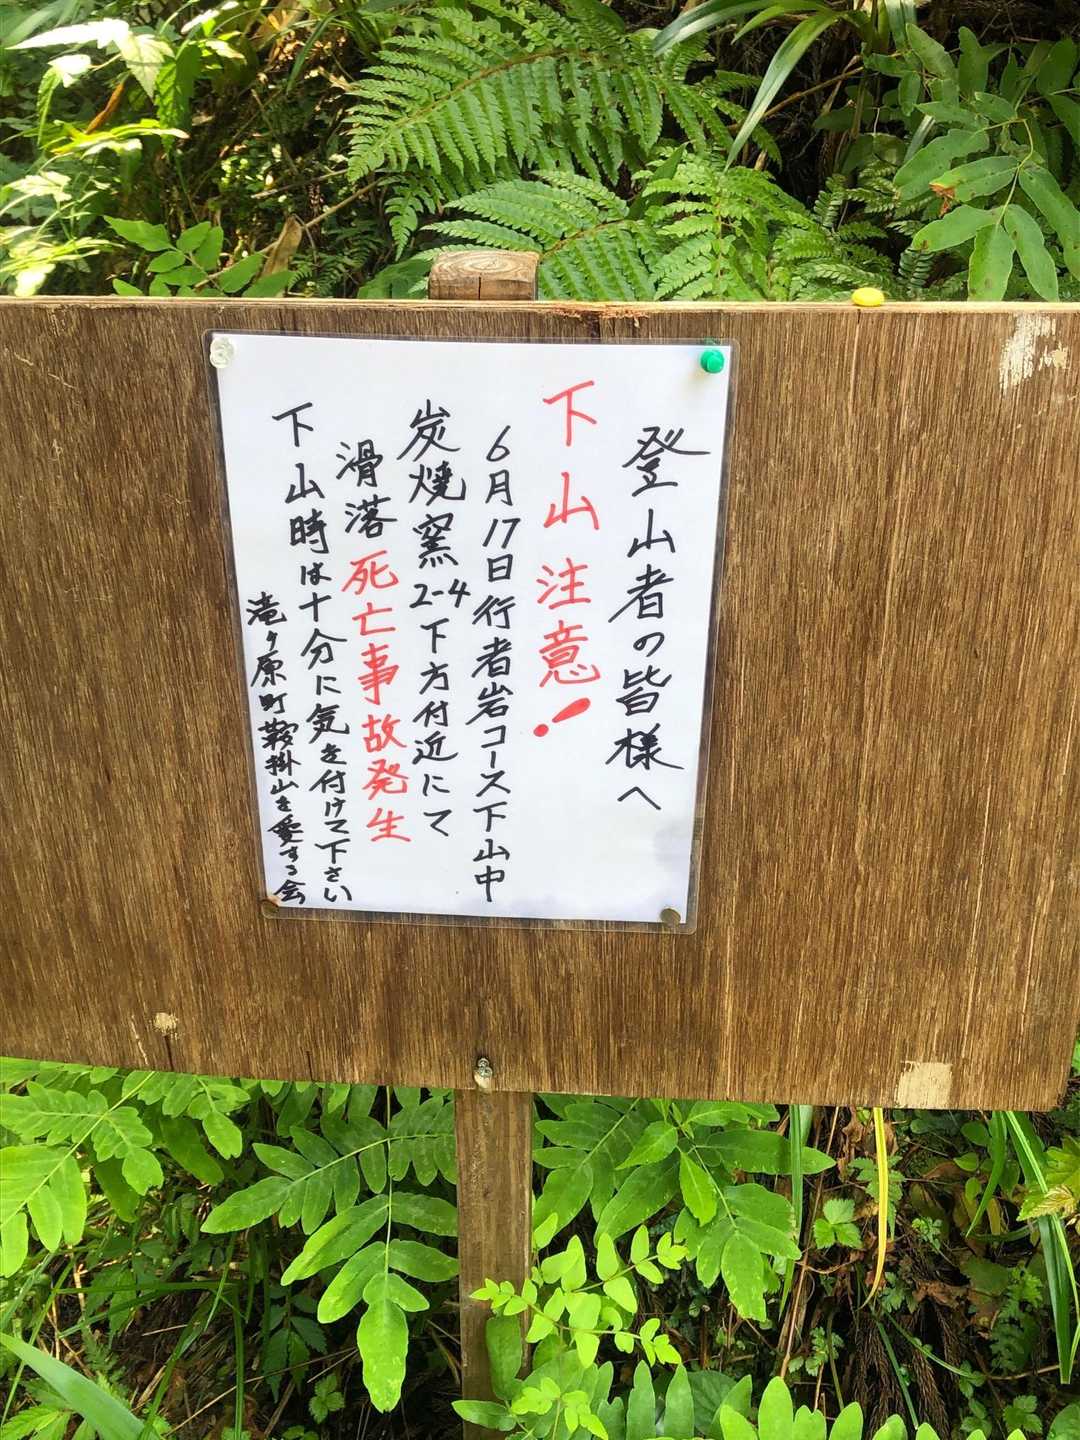 登山者の皆様へ
下山注意！
6月17日行者岩コース下山中
炭焼窯2-4下方付近にて
滑落死亡事故発生
下山時は十分に気を付けて下さい
滝ヶ原町鞍掛山を愛する会